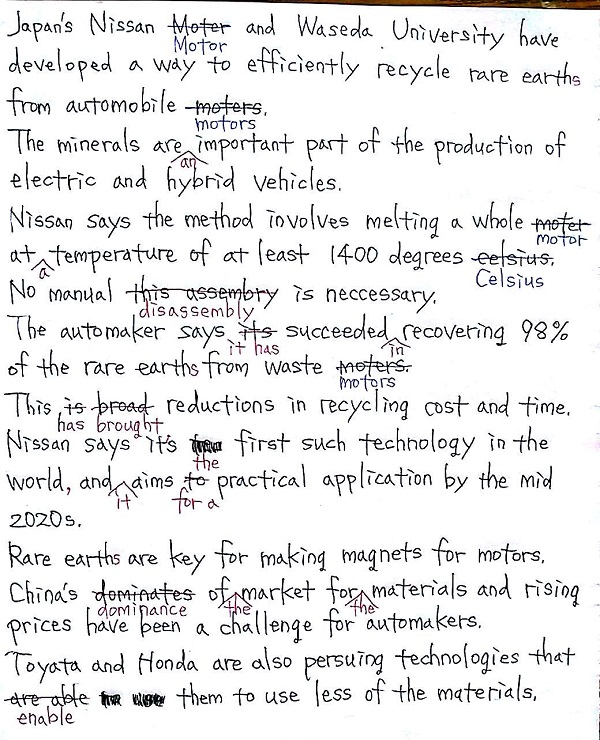 Japan's Nissan Moter and Waseda University have
Motor
developed a way to efficiently recycle rare earths
from automobile moters.
motors
The minerals are important part of the production of
an
electric and hybrid vehicles.
Nissan says the method involves melting a whole moter
motor
at temperature of at least 1400 degrees celsius.
a
Celsius
No manual this assembry is neccessary.
disassembly
The automaker says its succeeded recovering 98%
it has
in
of the rare earths from waste moters.
motors
This is broad reductions in recycling cost and time.
has brought
Nissan says it's first such technology in the
the
world, and aims to practical application by the mid
it
for a
2020s.
Rare earths are key for making magnets for motors.
China's dominates of market for materials and rising
dominance
the
the
prices have been a challenge for automakers.
Toyata and Honda are also persuing technologies that
are able them to use less of the materials.
enable